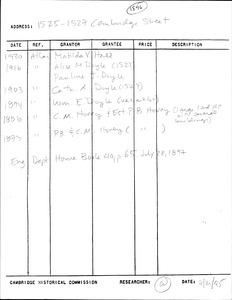 1896
ADDRESS: 1525-1529 Cambridge Street
DATE REF. GRANTOR GRANTEE PRICE DESCRIPTION
1930 Atlas Matilda V.
1916 " Alice M Doyle (1527)
Pauline J. Doyle
1903 " Cath. A Doyle (1527)
1894 " Wm. E Doyle (vacant lot)
1886 " C.M. Hovey & Est. P.B. Hovey (large lot w/ several buildings)
1873 " P.B. & C.M. Hovey ( " )
Eng. Dept House Book p. 65 July 28, 1897
CAMBRIDGE HISTORICAL COMMISSION RESEARCHER: DATE: